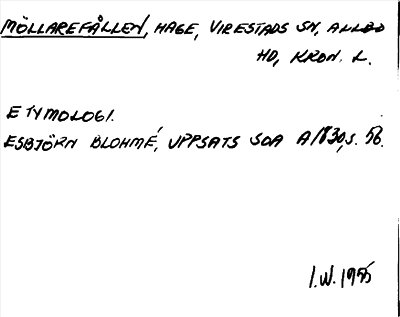 MÖLLAREFÅLLEN, HAGE, VIRESTADS SN, ALLBO
HD, KRON. L.
ETYMOLOGI.
ESBJÖRN BLOHMÉ, UPPSATS SOA A1830, S. 56.
I.W. 1955